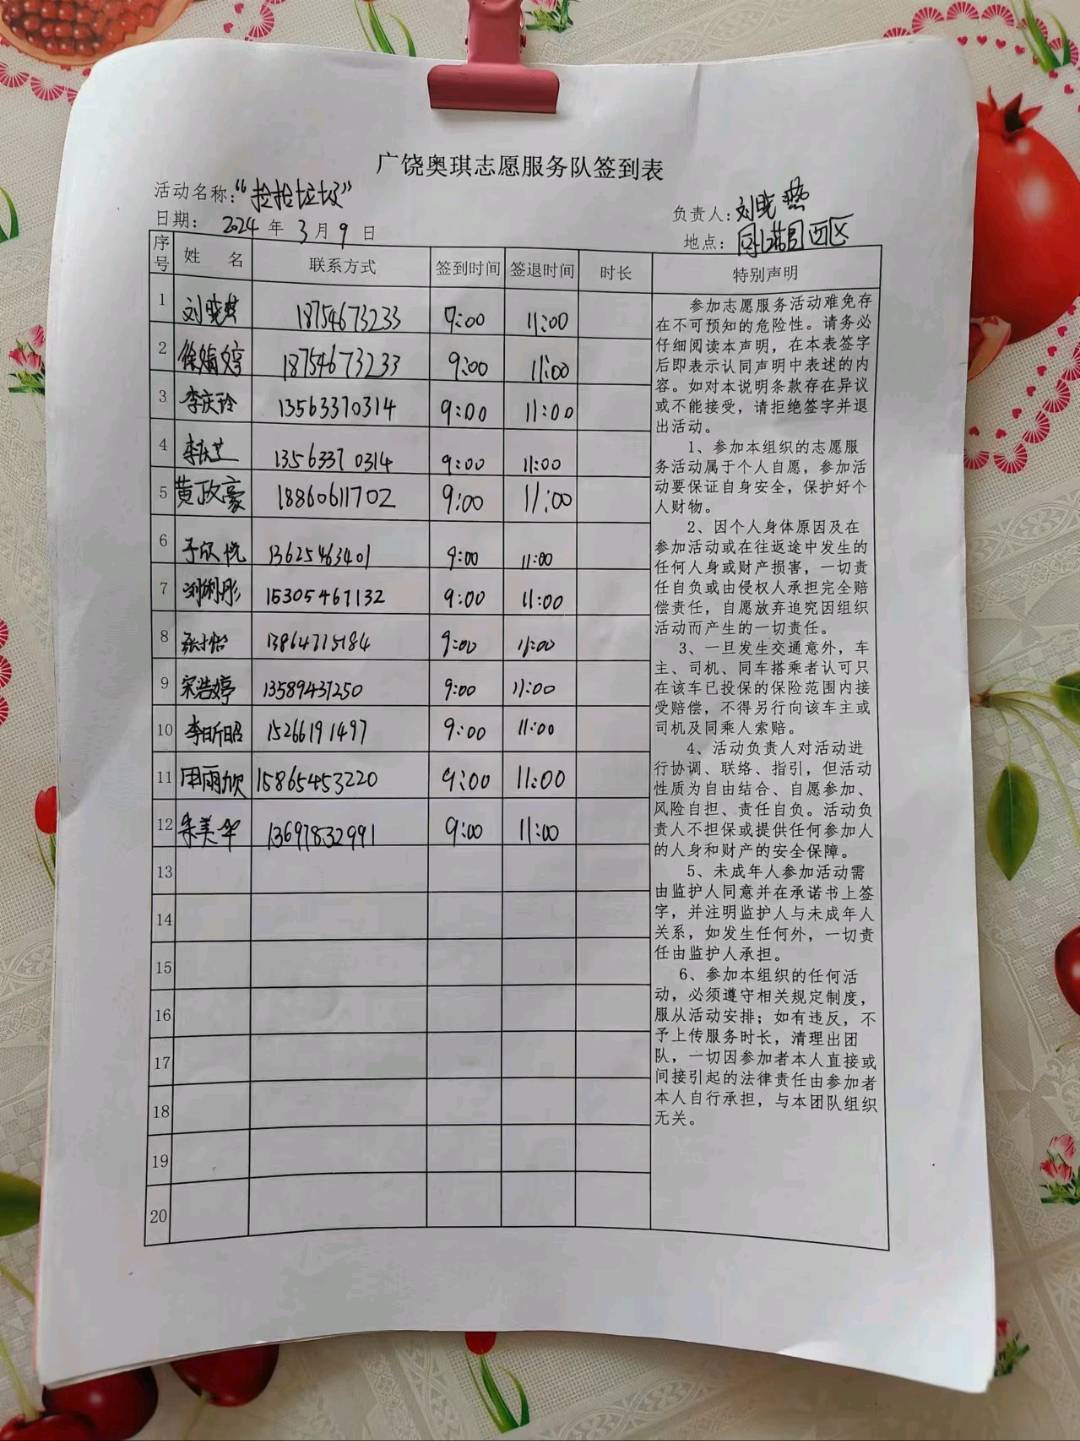 广饶奥琪志愿服务队签到表
活动名称:“捡拾垃圾”
负责人:刘晓燕
日期: 2024 年 3 月 9 日
地点: 西区
序号 姓 名 联系方式 签到时间 签退时间 时长 特别声明
1 刘晓燕 18754673233 9:00 11:00
2 徐婧婷 18754673233 9:00 11:00
3 李庆玲 13563370314 9:00 11:00
4 李庆芝 13563370314 9:00 11:00
5 黄政豪 18860611702 9:00 11:00
6 于欣悦 13625463401 9:00 11:00
7 刘俐彤 15305467132 9:00 11:00
8 13864715184 9:00 11:00
9 宋浩婷 13589437250 9:00 11:00
10 李昕昭 15266191497 9:00 11:00
11 田雨欣 15865453220 9:00 11:00
12 朱美华 13697832991 9:00 11:00
13
14
15
16
17
18
19
20
参加志愿服务活动难免存
在不可预知的危险性。请务必
仔细阅读本声明，在本表签字
后即表示认同声明中表述的内
容。如对本说明条款存在异议
或不能接受，请拒绝签字并退
出活动。
1、参加本组织的志愿服
务活动属于个人自愿，参加活
动要保证自身安全，保护好个
人财物。
2、因个人身体原因及在
参加活动或在往返途中发生的
任何人身或财产损害，一切责
任自负或由侵权人承担完全赔
偿责任，自愿放弃追究因组织
活动而产生的一切责任。
3、一旦发生交通意外，车
主、司机、同车搭乘者认可只
在该车已投保的保险范围内接
受赔偿，不得另行向该车主或
司机及同乘人索赔。
4、活动负责人对活动进
行协调、联络、指引，但活动
性质为自由结合、自愿参加、
风险自担、责任自负。活动负
责人不担保或提供任何参加人
的人身和财产的安全保障。
5、未成年人参加活动需
由监护人同意并在承诺书上签
字，并注明监护人与未成年人
关系，如发生任何外，一切责
任由监护人承担。
6、参加本组织的任何活
动，必须遵守相关规定制度，
服从活动安排；如有违反，不
予上传服务时长，清理出团
队，一切因参加者本人直接或
间接引起的法律责任由参加者
本人自行承担，与本团队组织
无关。